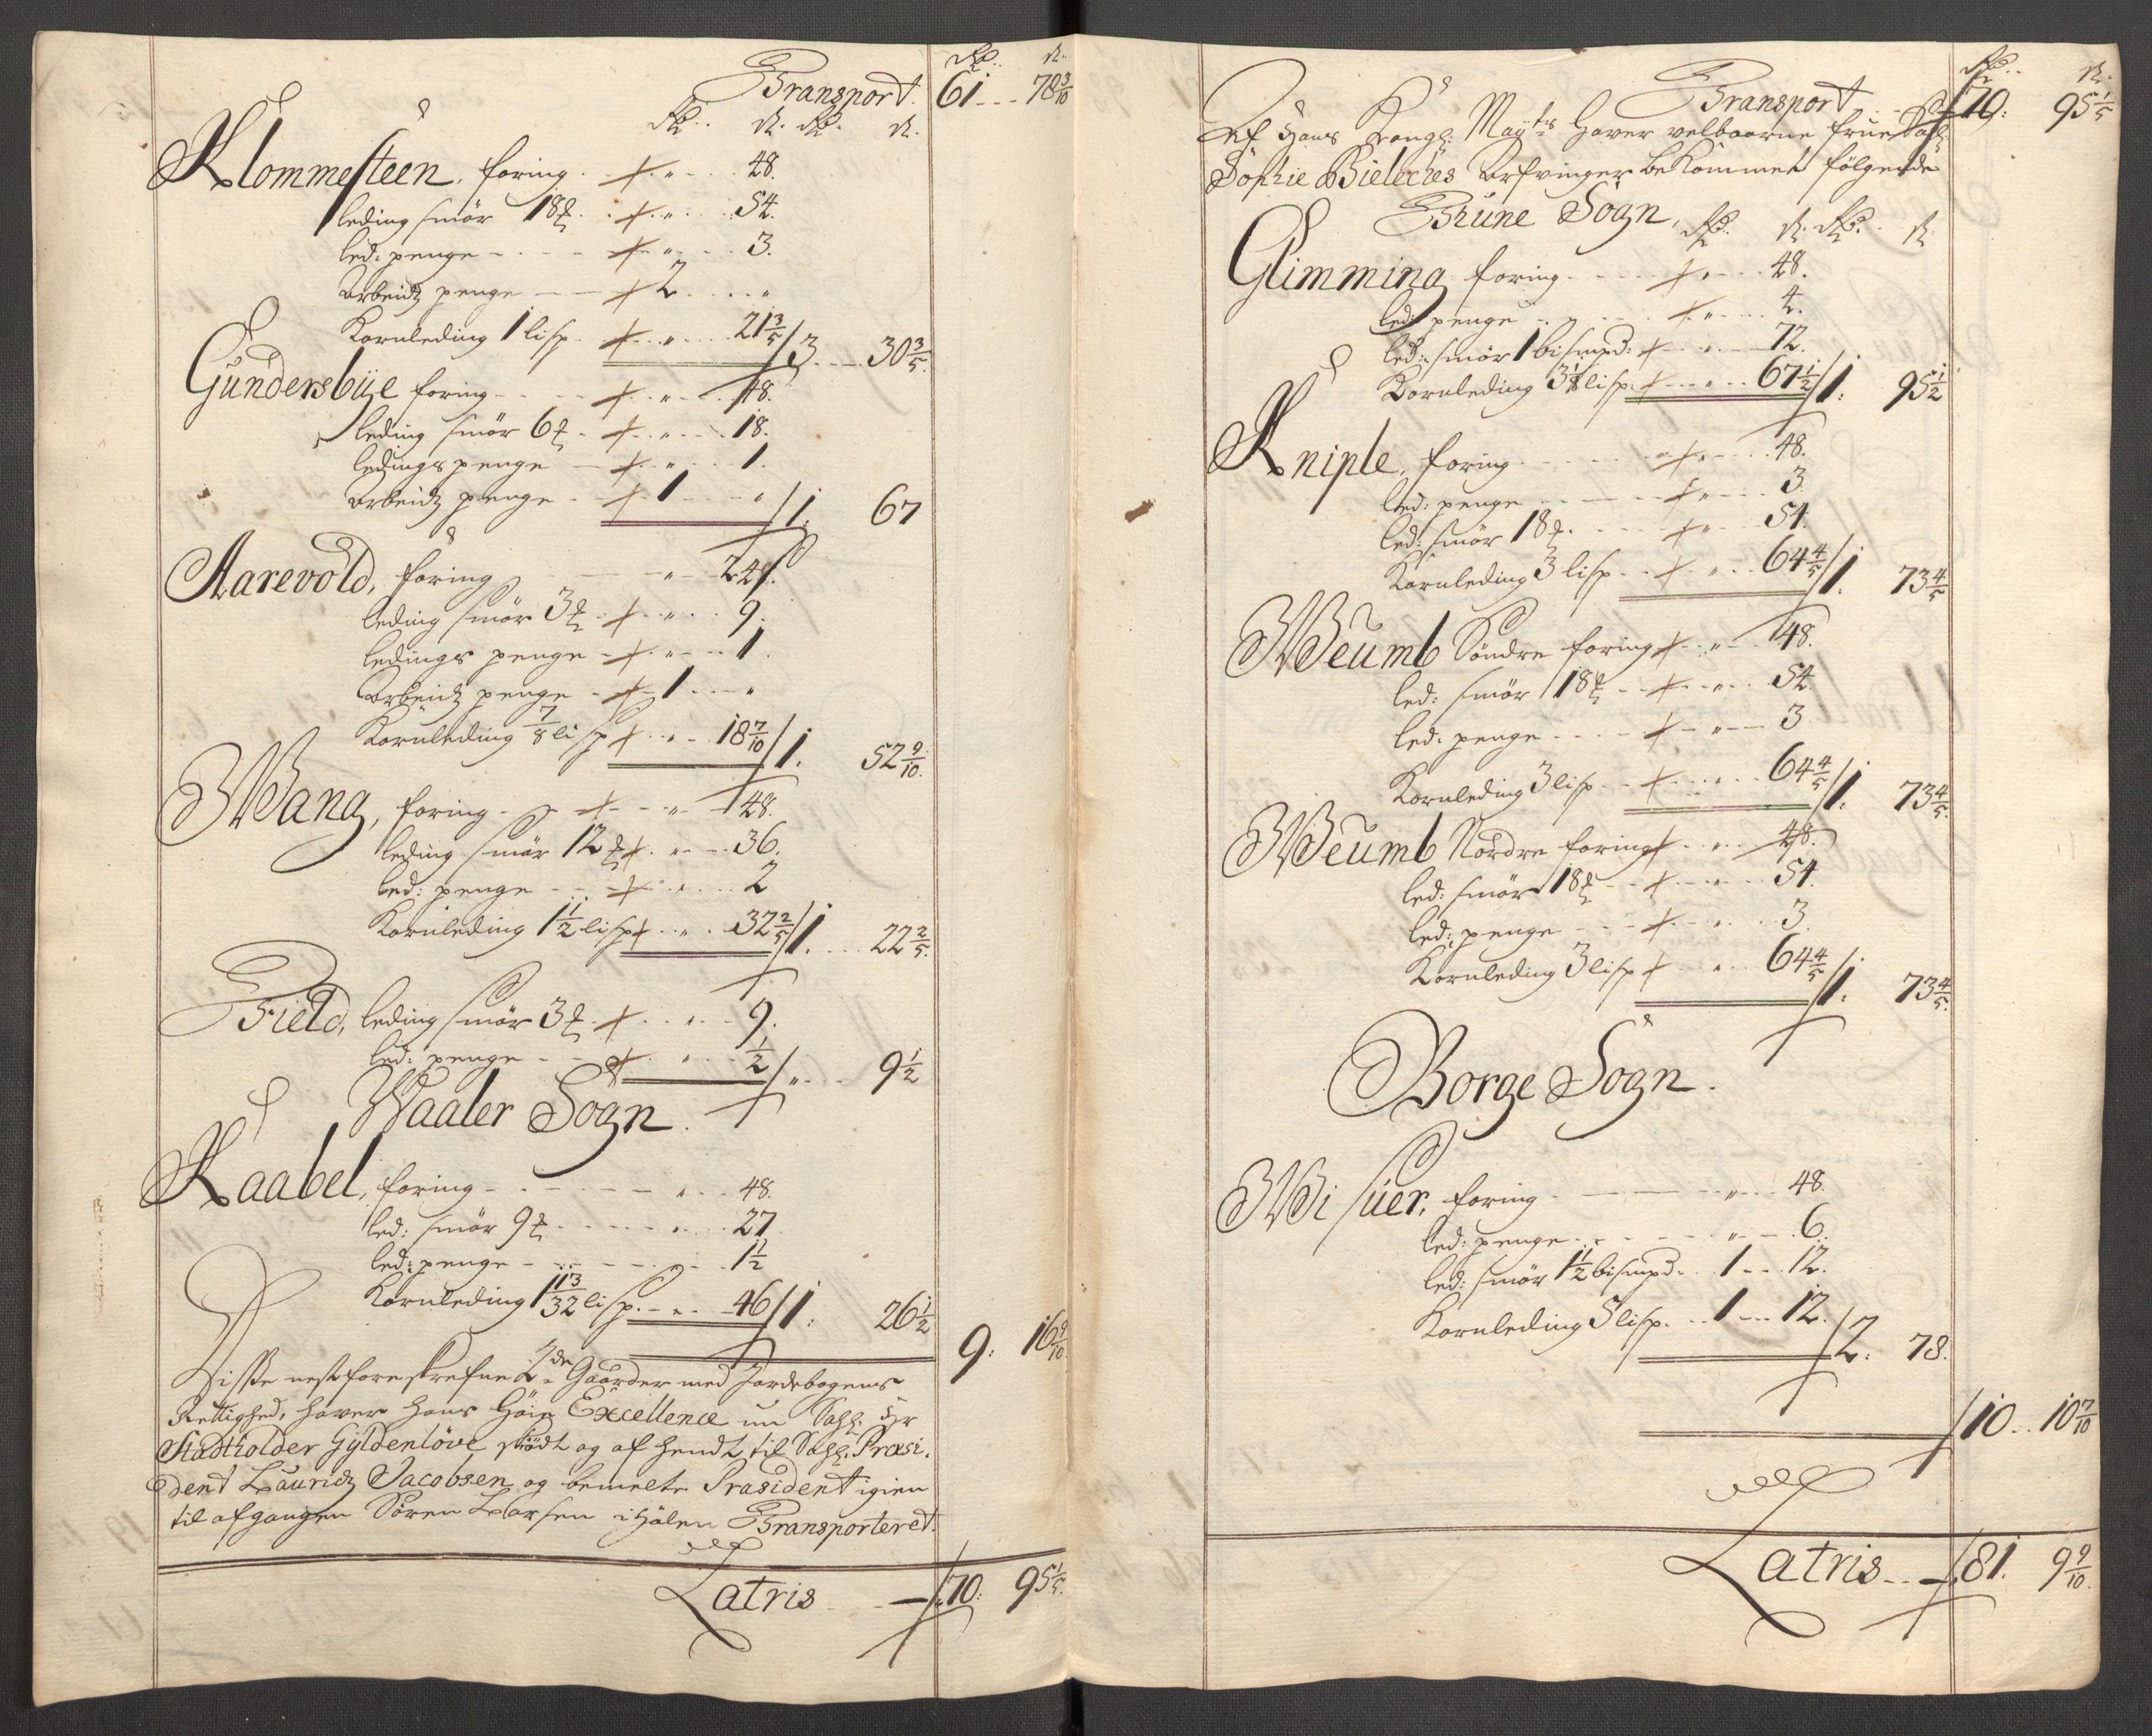 Transport. 61 - - 78 3/10
Klommesteen, foring. - " - 48.
leding smör 18 - " - 54.
led: penge - - - " - 3.
Arbeidz penge - - 2 - - "
Kornleding 1 lisp - " - 21 3/5 / 3 - - 30 3/5.
Gundersbÿe foring - - " - 48.
leding smör 6 - " - 18.
ledings penge - " - 1.
Arbeidz penge - - 1 - - " / 1: 67
Aarevold, foring - - " - 24.
leding smör 3 - " - 9.
ledings penge - " - 1.
Arbeidz penge - - 1 - - "
Kornleding 7/8 lisp - " - 18 7/10 / 1. 52 9/10.
Wang, foring - - " - 48.
leding smör 12 - " - 36.
led: penge - - " - 2
Kornleding 1 1/2 lisp - " - 32 2/5 / 1. - - 22 2/5.
Field, leding smör 3 - " - 9.
led: penge - - " - 1/2 / " - - 9 1/2
Waaler Sogn.
Kaabel, foring - - - " - 48.
led: smör 9 - - - " - 27
led: penge - - - " - 1 1/2
Kornleding 1 13/32 lisp. - " - 46 / 1: 26 1/2
9: 16 9/10
Disse nest foreskrefne 2de Gaarder med Jordebogens
Rettighed, haver hans Höie Excellence nu Sahl. Hr
Stadtholder Gÿldenlöve skiödt og af hendt til Sahl. Præsi-
dent Lauridz Jacobsen og bemelte Præsident igien
til afgangen Sören Larsen i Hölen Transporteret.
Latris - - 70: 95 1/5.
Transport - - 70: 95 1/5
Af Hans Kongl: Mayts haver velbaarne frue Sahl:
Sophie Bielches Arfvinger bekommet fölgende
Thune Sogn,
Glimming foring - - " - 48.
led: penge - - " - 4.
led: smör 1 bismpd: - " - 72.
Kornleding 3 1/8 lisp. - " - 67 1/2 / 1: 95 1/2
Kniple, foring - - " - 48.
led: penge - - " - 3
led: smör 18 - - " - 54.
Kornleding 3 lisp - " - 64 4/5 / 1. 73 4/5
Weumb Söndre foring - " - 48.
led: smör 18 - " - 54.
led: penge - - " - 3
Kornleding 3 lisp - " - 64 4/5 / 1. 73 4/5.
Weumb Nordre foring - " - 48.
led: smör 18 - " - 54.
led: penge - - " - 3.
Kornleding 3 lisp - " - 64 4/5 / 1: 73 4/5.
Borge Sogn.
Wisuer, foring - - - " - 48.
led: penge - - - " - 6.
led: smör 1 1/2 bismpd - 1 - - 12.
Kornleding 5 lisp. - - 1 - - 12. / 2: 78.
10 - - 10 7/10
Latris - - 81. 9 9/10.